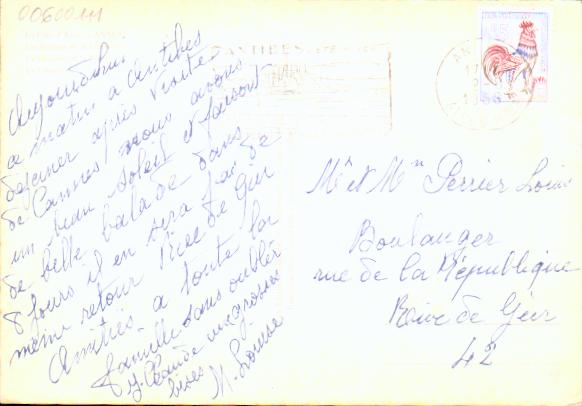 00600111
ANTIBES
Aujourd'hui
ce matin a Antibes
dejeuner après visite
de Cannes, nous avons
un beau soleil et faisont
de belle balade dans
8 jours il en sera fai de
même retour Rive de Gier
Amitiés a toute la
famille sans oublier
J. Claude un grosses
bises M. Louise
Mr et Mme Perrier Louis
Boulanger
rue de la République
Rive de Gier
42